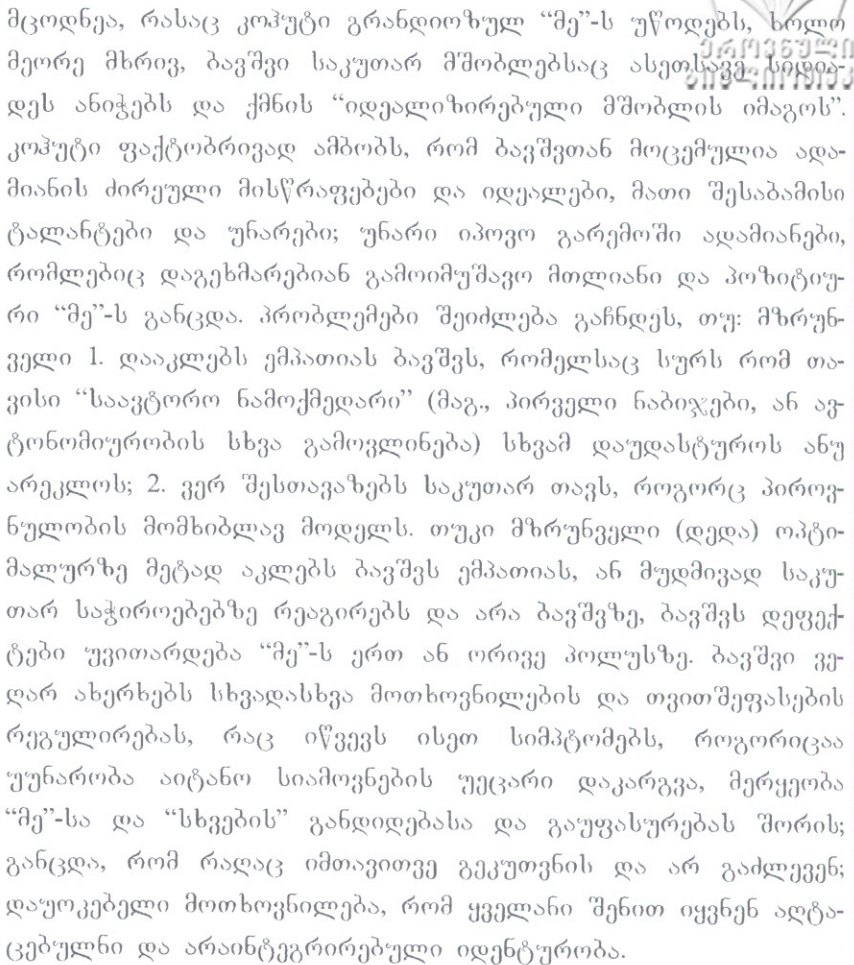 მცოდნეა, რასაც კოჰუტი გრანდიოზულ “მე”-ს უწოდებს, ხოლო
მეორე მხრივ, ბავშვი საკუთარ მშობლებსაც ასეთსავე სიდია-
დეს ანიჭებს და ქმნის “იდეალიზირებული მშობლის იმაგოს”.
კოჰუტი ფაქტობრივად ამბობს, რომ ბავშვთან მოცემულია ადა-
მიანის ძირეული მისწრაფებები და იდეალები, მათი შესაბამისი
ტალანტები და უნარები; უნარი იპოვო გარემოში ადამიანები,
რომლებიც დაგეხმარებიან გამოიმუშავო მთლიანი და პოზიტიუ-
რი “მე”-ს განცდა. პრობლემები შეიძლება გაჩნდეს, თუ: მზრუნ-
ველი 1. დააკლებს ემპათიას ბავშვს, რომელსაც სურს რომ თა-
ვისი “საავტორო ნამოქმედარი” (მაგ., პირველი ნაბიჯები, ან ავ-
ტონომიურობის სხვა გამოვლინება) სხვამ დაუდასტუროს ანუ
არეკლოს; 2. ვერ შესთავაზებს საკუთარ თავს, როგორც პიროვ-
ნულობის მომხიბლავ მოდელს. თუკი მზრუნველი (დედა) ოპტი-
მალურზე მეტად აკლებს ბავშვს ემპათიას, ან მუდმივად საკუ-
თარ საჭიროებებზე რეაგირებს და არა ბავშვზე, ბავშვს დეფექ-
ტები უვითარდება “მე”-ს ერთ ან ორივე პოლუსზე. ბავშვი ვე-
ღარ ახერხებს სხვადასხვა მოთხოვნილების და თვითშეფასების
რეგულირებას, რაც იწვევს ისეთ სიმპტომებს, როგორიცაა
უუნარობა აიტანო სიამოვნების უეცარი დაკარგვა, მერყეობა
“მე”-სა და “სხვების” განდიდებასა და გაუფასურებას შორის;
განცდა, რომ რაღაც იმთავითვე გეკუთვნის და არ გაძლევენ;
დაუოკებელი მოთხოვნილება, რომ ყველანი შენით იყვნენ აღტა-
ცებულნი და არაინტეგრირებული იდენტურობა.
ეროვნული
ბიბლიოთეკა